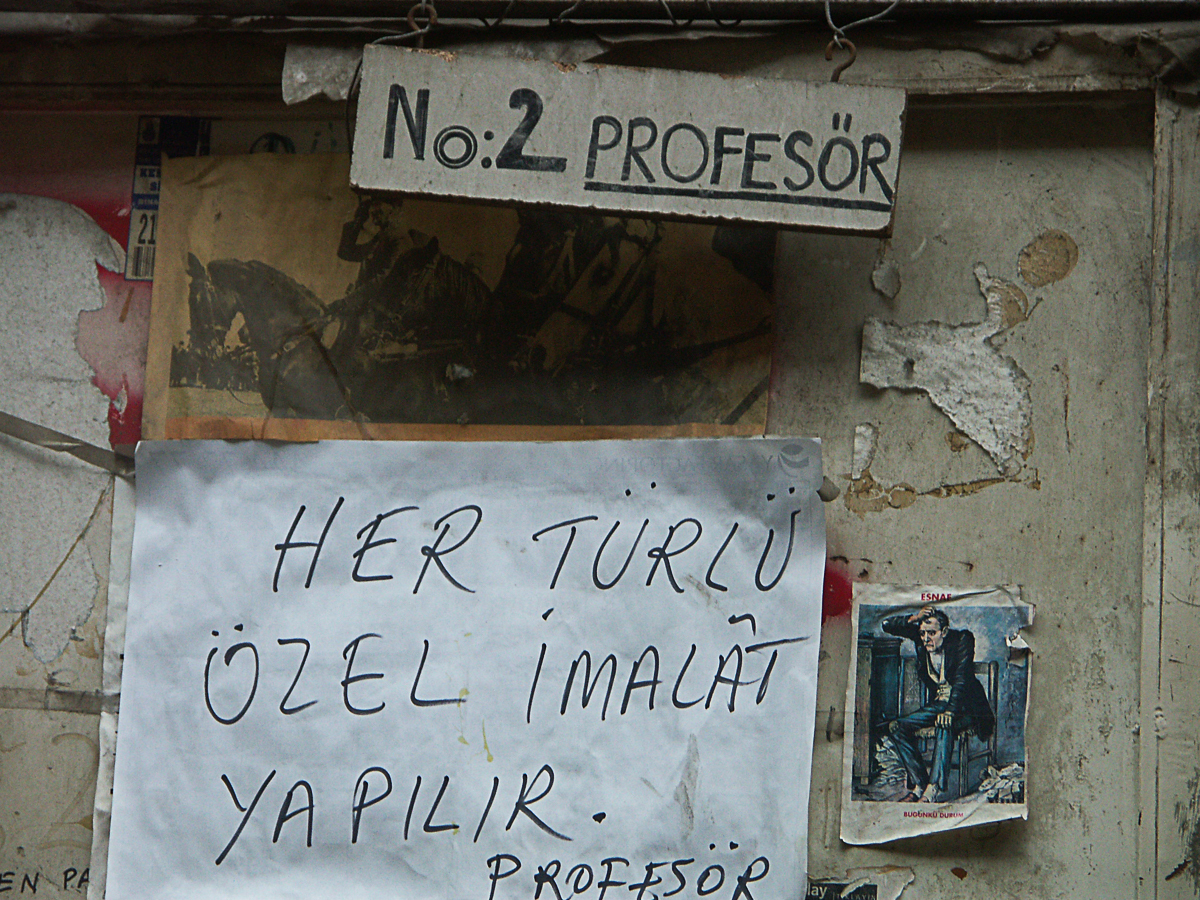 No:2 PROFESÖR
21
HER TÜRLÜ
ÖZEL İMALÂT
YAPILIR.
PROFESÖR
ESNAF
BUGÜNKÜ DURUM
EN PA
lay